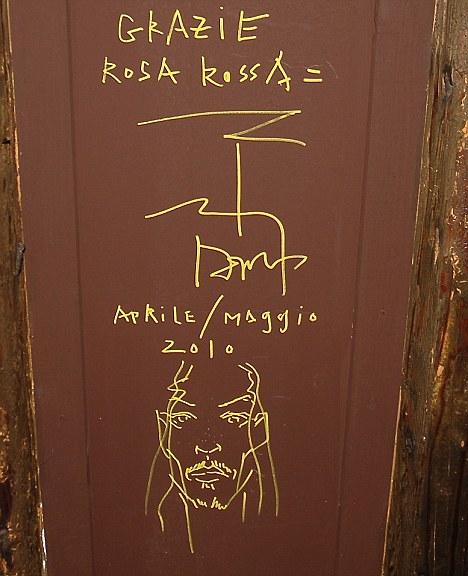 GRAZiE
ROSA RossA =
APRiLE/MAggiO
2010